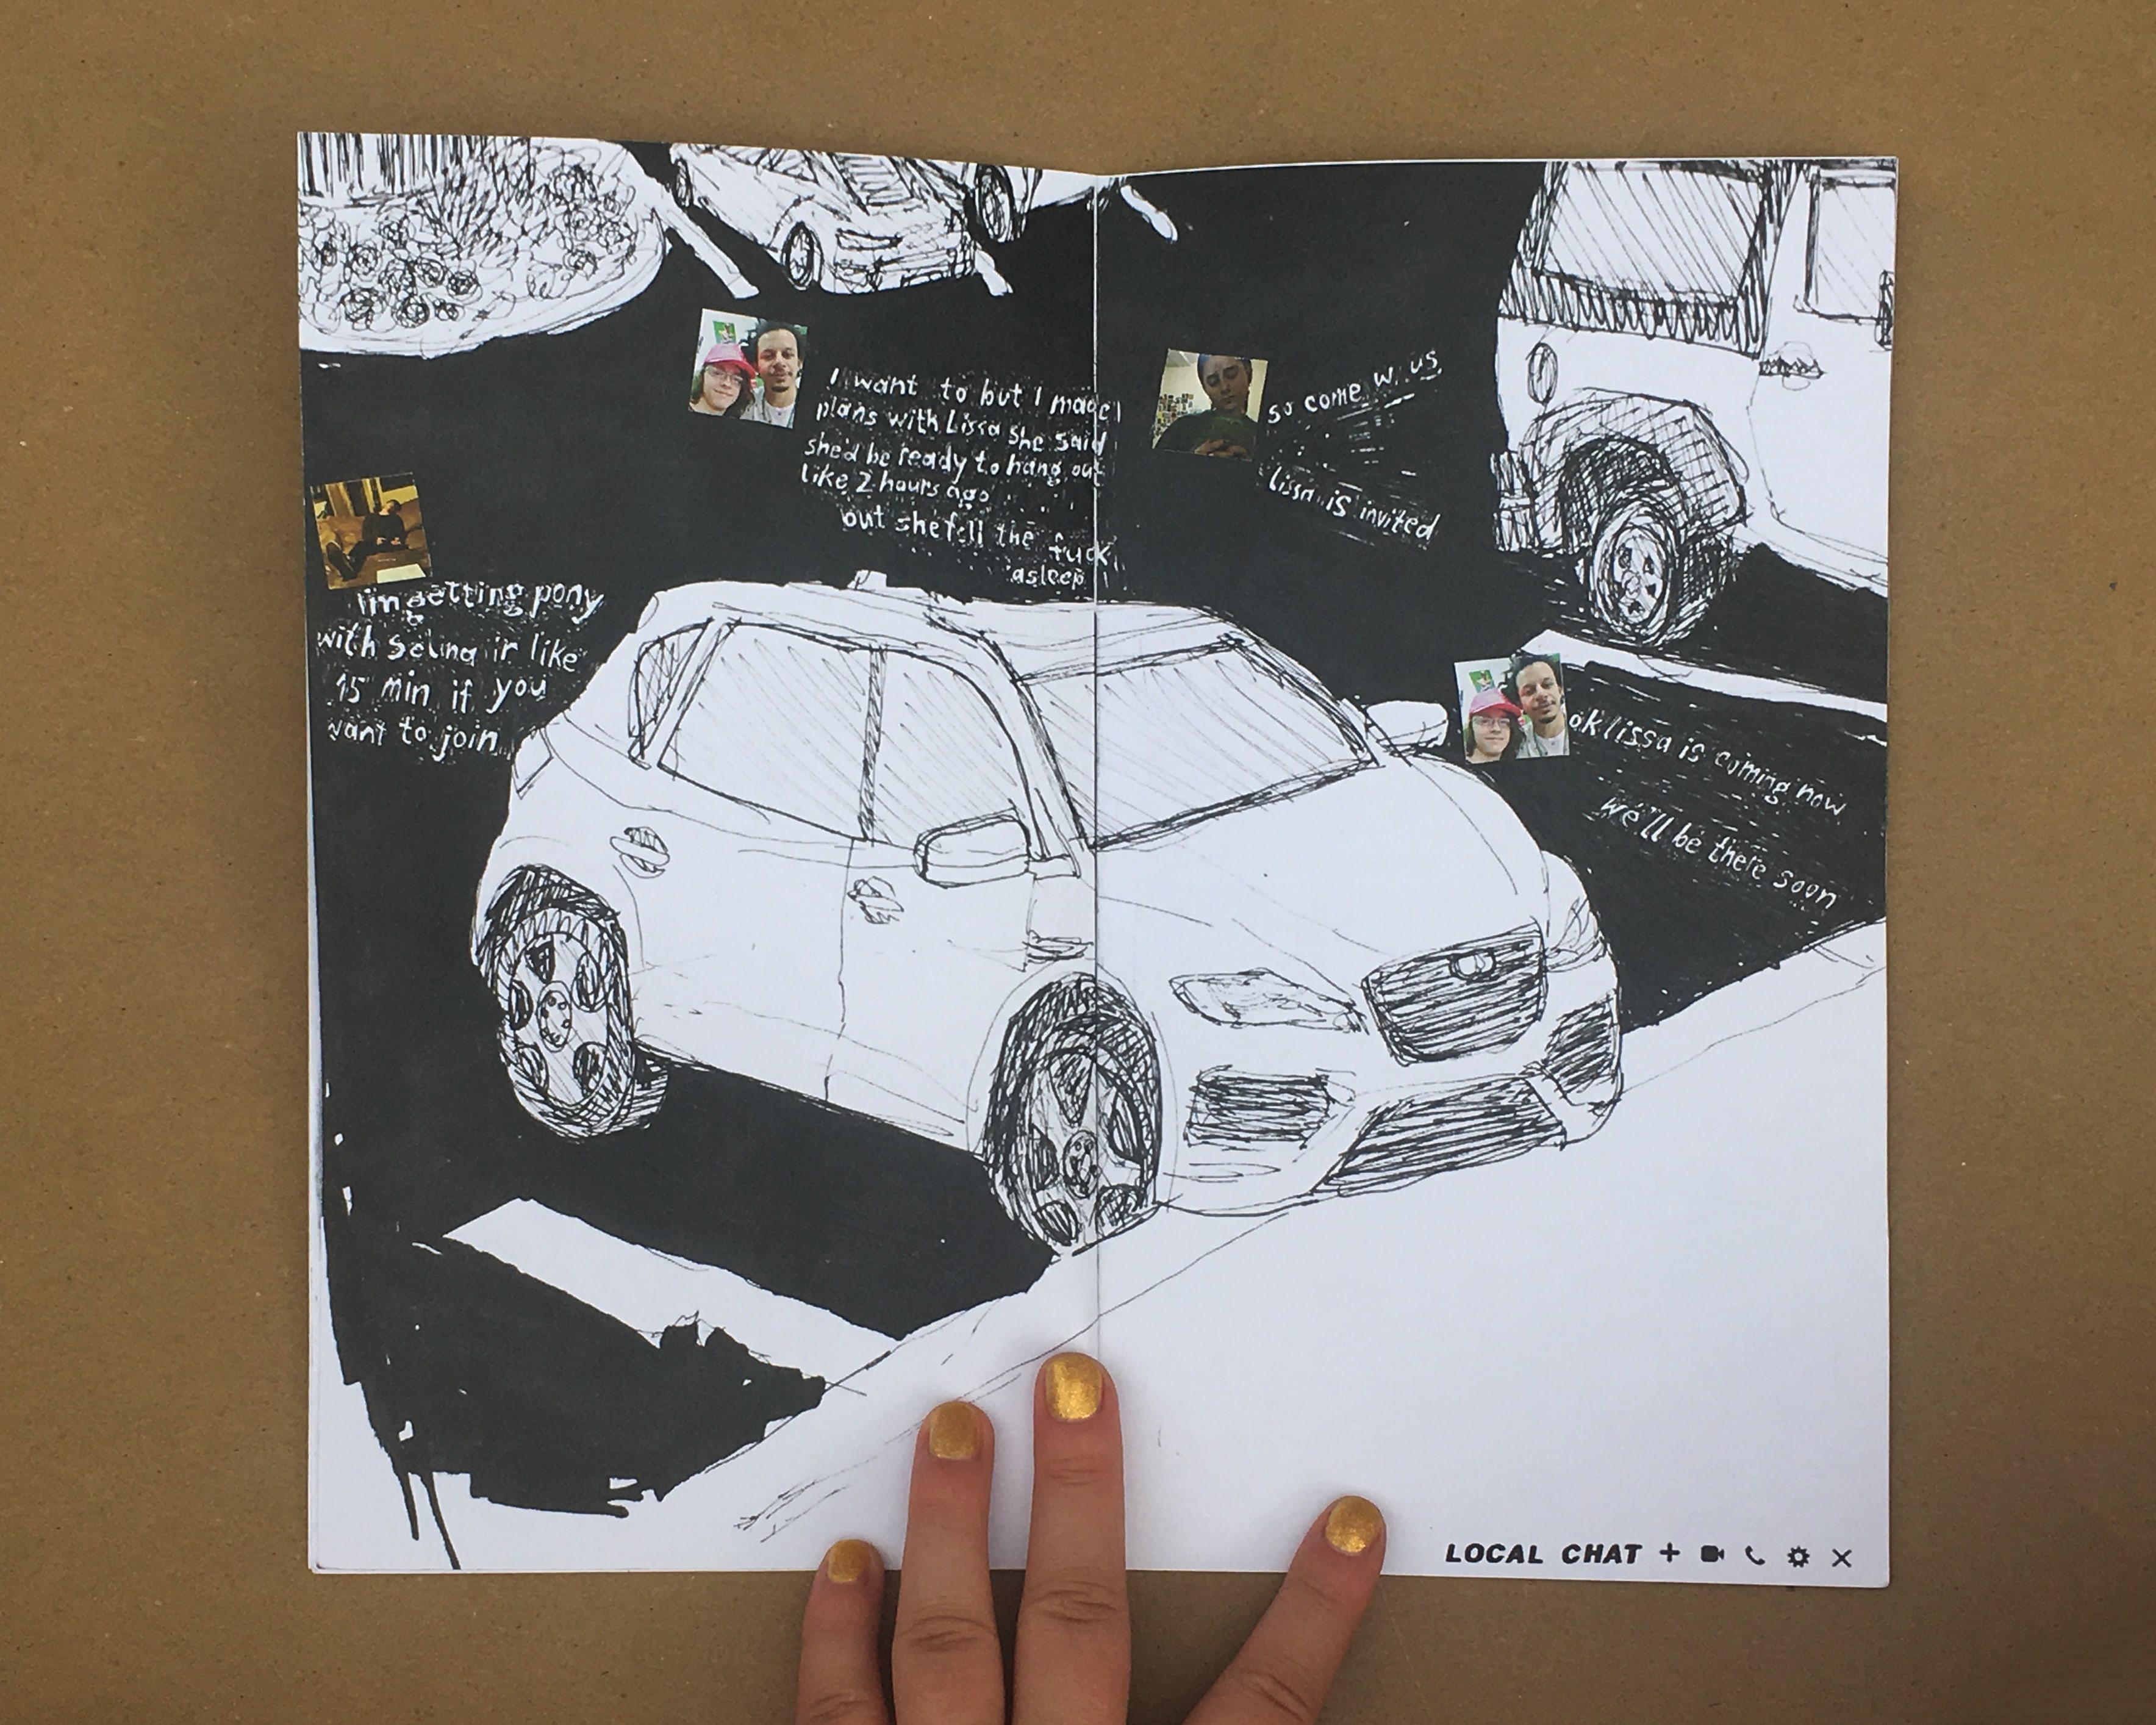 I'm getting pony
with Selina in like
15 min if you
want to join
I want to but I made
plans with Lissa she said
she'd be ready to hang out
like 2 hours ago
but she fell the fuck
asleep
so come w us
lissa is invited
ok lissa is coming now
we'll be there soon
LOCAL CHAT